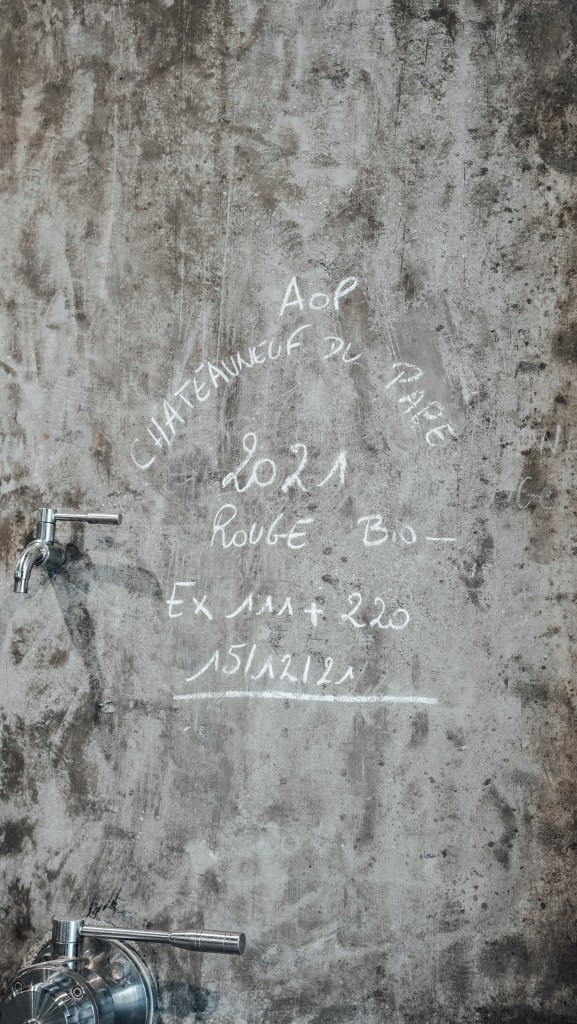 AOP
CHATEAUNEUF DU PAPE
2021
ROUGE BIO –
EX 111 + 220
15/12/21